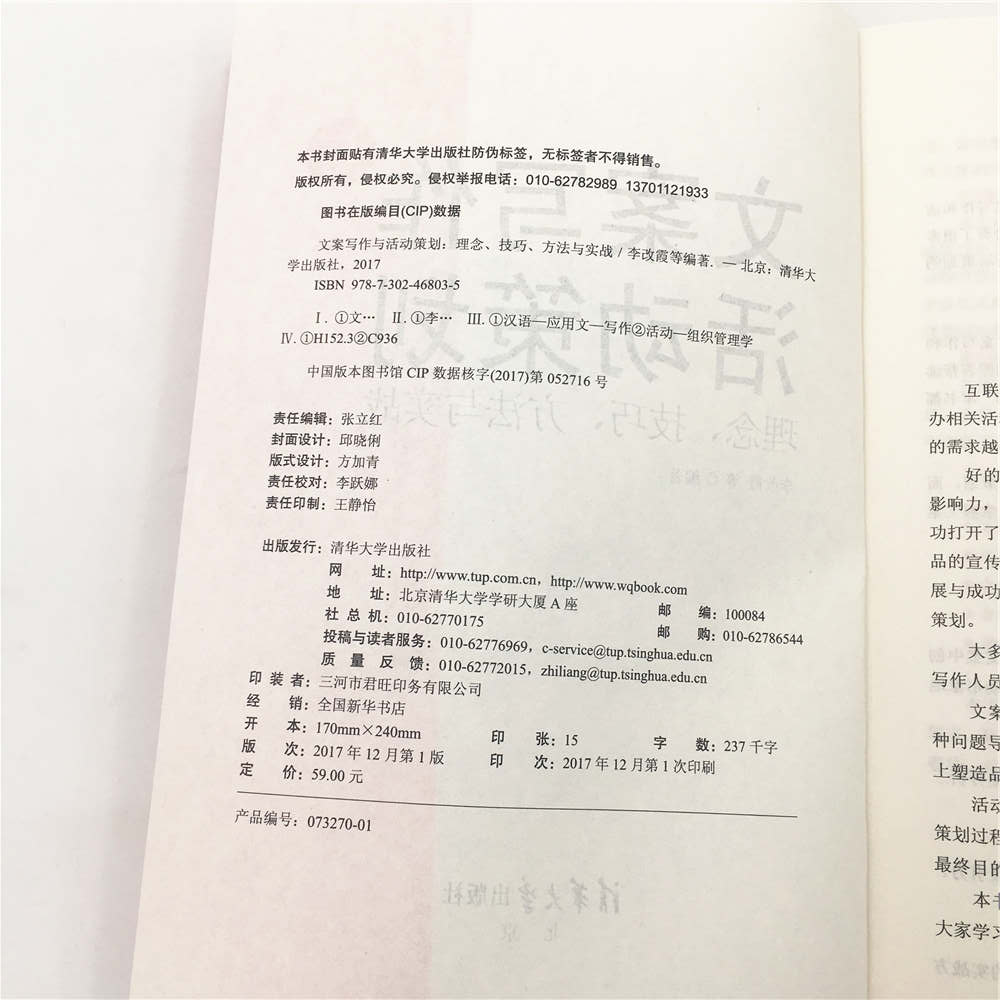 本书封面贴有清华大学出版社防伪标签，无标签者不得销售。
版权所有，侵权必究。侵权举报电话：010-62782989 13701121933
图书在版编目(CIP)数据
文案写作与活动策划：理念、技巧、方法与实战 / 李改霞等编著. — 北京：清华大
学出版社，2017
ISBN 978-7-302-46803-5
Ⅰ. ①文… Ⅱ. ①李… Ⅲ. ①汉语—应用文—写作②活动—组织管理学
Ⅳ. ①H152.3②C936
中国版本图书馆 CIP 数据核字(2017)第 052716 号
责任编辑：张立红
封面设计：邱晓俐
版式设计：方加青
责任校对：李跃娜
责任印制：王静怡
出版发行：清华大学出版社
网 址：http://www.tup.com.cn，http://www.wqbook.com
地 址：北京清华大学学研大厦 A 座 邮 编：100084
社 总 机：010-62770175 邮 购：010-62786544
投稿与读者服务：010-62776969，c-service@tup.tsinghua.edu.cn
质 量 反 馈：010-62772015，zhiliang@tup.tsinghua.edu.cn
印 装 者：三河市君旺印务有限公司
经 销：全国新华书店
开 本：170mm×240mm 印 张：15 字 数：237 千字
版 次：2017 年 12 月第 1 版 印 次：2017 年 12 月第 1 次印刷
定 价：59.00 元
产品编号：073270-01
文案写作
活动策划
理念、技巧、方法与实战
清华大学出版社
北京
互联
办相关活
的需求越
好的
影响力，
功打开了
品的宣传
展与成功
策划。
大多
写作人员
文案
种问题导
上塑造品
活动
策划过程
最终目的
本书
大家学习